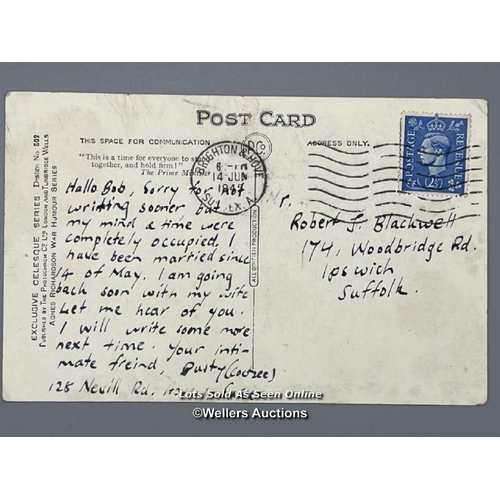 POST CARD
THIS SPACE FOR COMMUNICATION
ADDRESS ONLY.
"This is a time for everyone to
together, and hold firm!"
The Prime
BRIGHTON & HOVE
14 JUN
SUSSEX. A
POSTAGE
REVENUE
2½D
Hallo Bob, Sorry for not
writting sooner but
my mind & time were
completely occupied, I
have been married since
14 of May. I am going
back soon with my wife
Let me hear of you.
I will write some more
next time. Your inti-
mate freind, Dusty
128 Nevill Rd. Hove
Robert J. Blackwell
174, Woodbridge Rd.
Ipswich
Suffolk.
EXCLUSIVE CELESQUE SERIES Design No. 502
PUBLISHED BY THE PHOTOCHROM CO. LTD. LONDON AND TUNBRIDGE WELLS
AGNES RICHARDSON WAR HUMOUR SERIES
ALL BRITISH PRODUCTION
Lots Sold As Seen Online
©Wellers Auctions